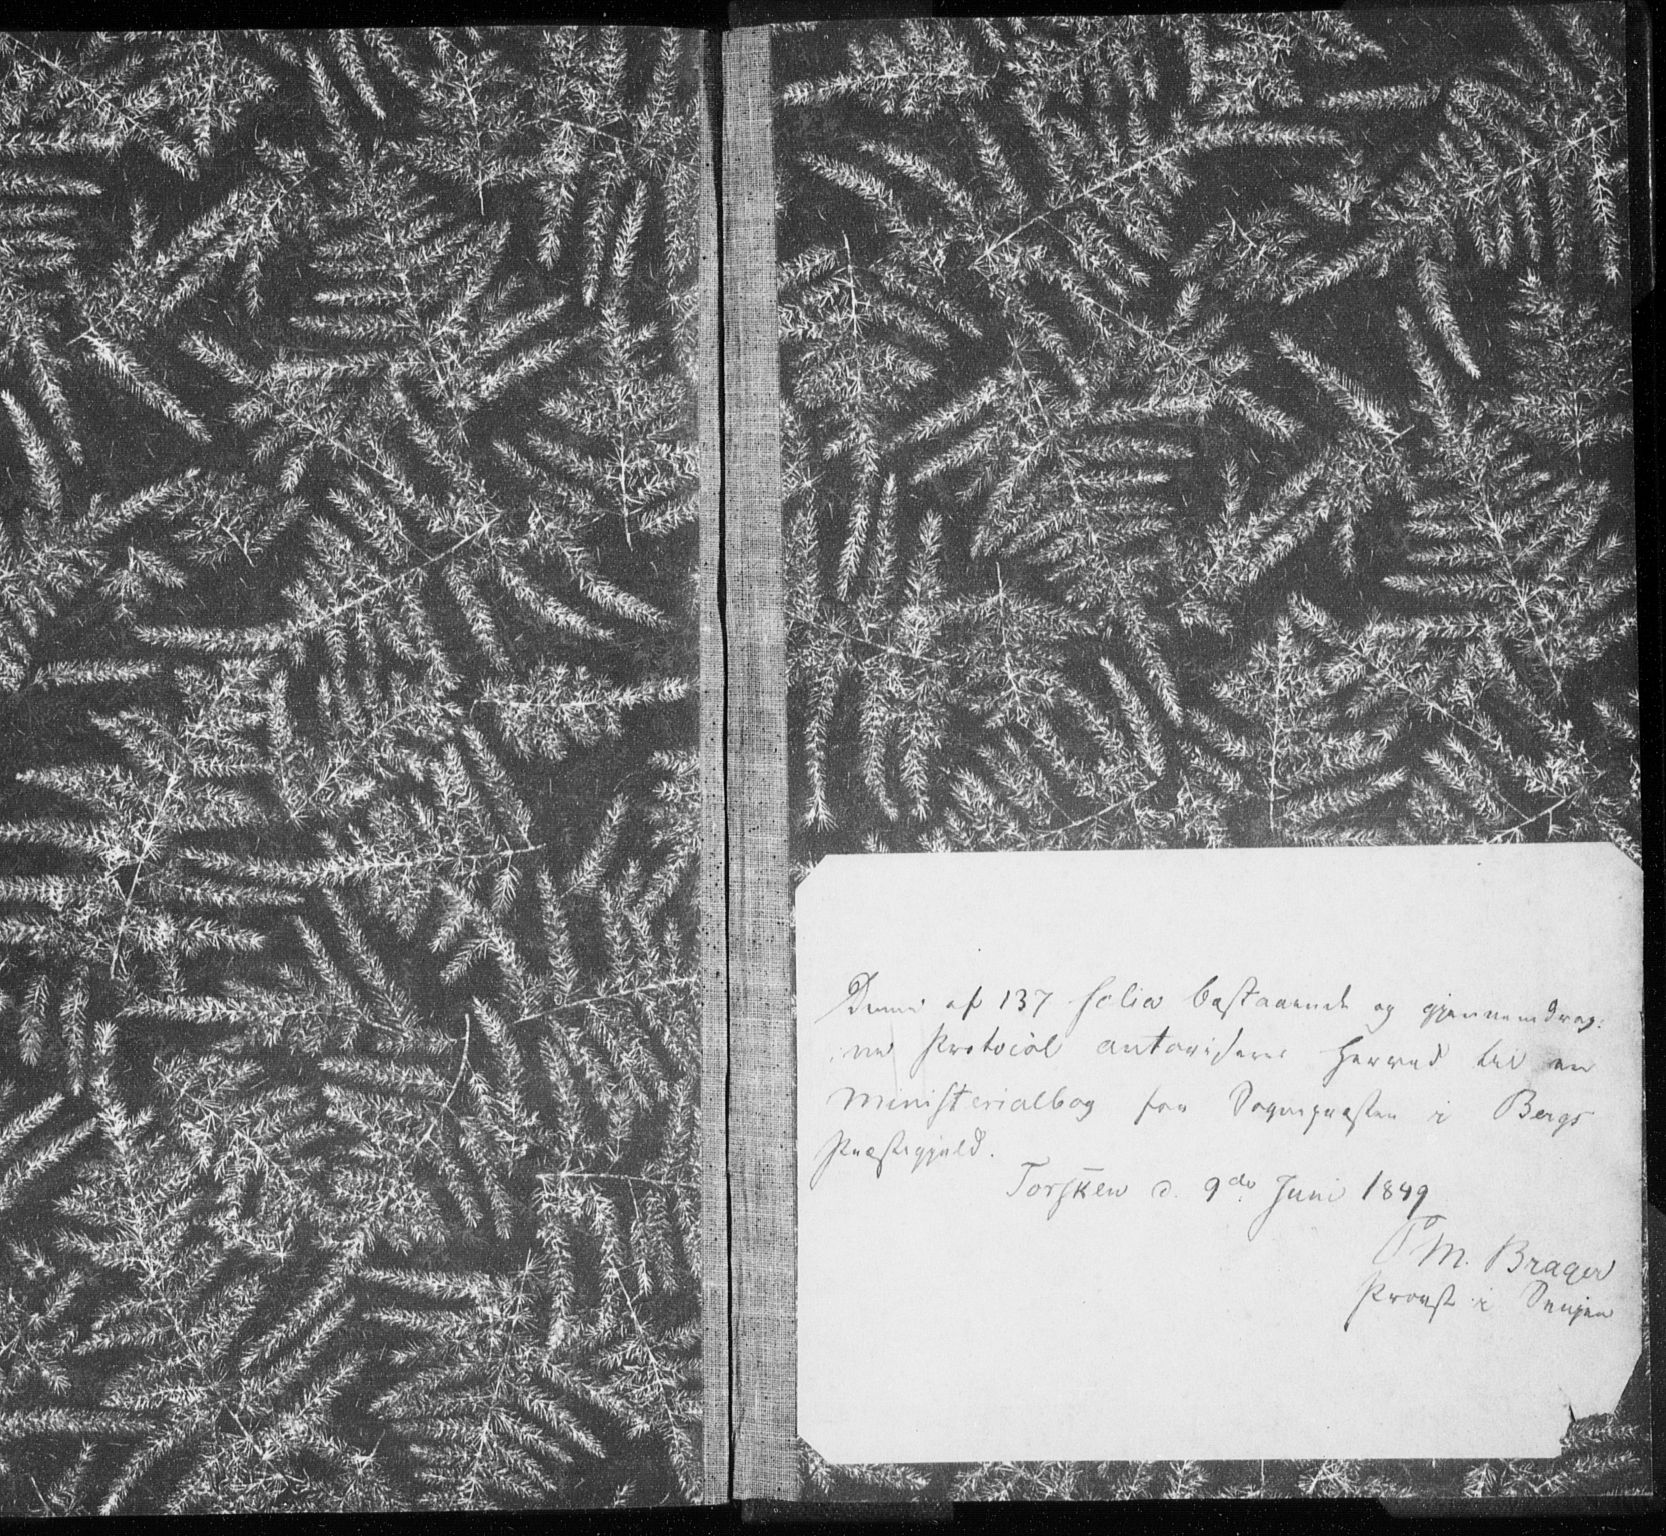 Denne af 137 folia bestaaende og gjennemdrag:
ne Protocol autoriseres herved til en
Ministerialbog for Sognepresten i Bergs
Præstegjeld.
Torsken d. 9de Juni 1849
M. Brager
Provst i Senjen